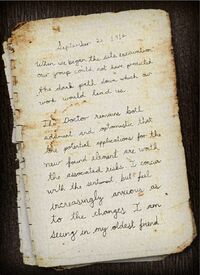 September 21, 1912
When we began the site excavation
our group could not have predicted
the dark path down which our
work would lead us.
The Doctor remains both
adamant and optimistic that
the potential applications for the
new found element are worth
the associated risks. I concur
with the sentiment but feel
increasingly anxious as
to the changes I am
seeing in my oldest friend